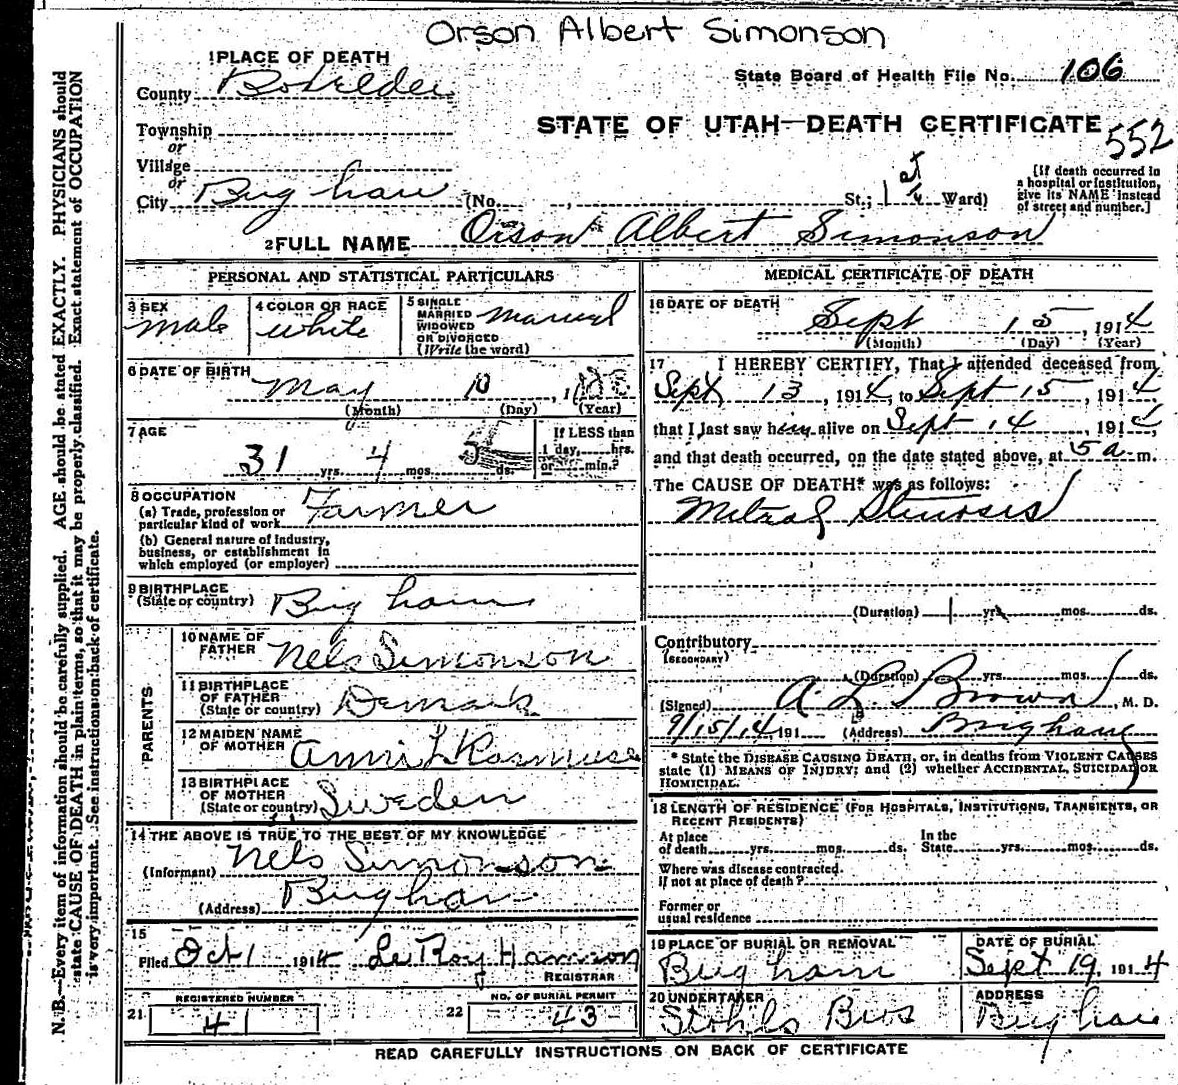 Orson Albert Simonson
1 PLACE OF DEATH
State Board of Health File No. 106
County Boxelder
STATE OF UTAH—DEATH CERTIFICATE
552
Township
or
Village
or
City Brigham (No. , St.; 1st Ward)
[If death occurred in
a hospital or institution,
give its NAME instead
of street and number.]
2 FULL NAME Orson Albert Simonson
PERSONAL AND STATISTICAL PARTICULARS
3 SEX
male
4 COLOR OR RACE
white
5 SINGLE
MARRIED
WIDOWED
OR DIVORCED
(Write the word)
married
6 DATE OF BIRTH
May 10, 1
(Month) (Day) (Year)
7 AGE
31 yrs. 4 mos. 5 ds.
If LESS than
1 day, hrs.
or min.?
8 OCCUPATION
(a) Trade, profession or
particular kind of work Farmer
(b) General nature of industry,
business, or establishment in
which employed (or employer)
9 BIRTHPLACE
(State or country) Brigham
PARENTS
10 NAME OF
FATHER Nels Simonson
11 BIRTHPLACE
OF FATHER
(State or country) Demark
12 MAIDEN NAME
OF MOTHER
13 BIRTHPLACE
OF MOTHER
(State or country) Sweden
14 THE ABOVE IS TRUE TO THE BEST OF MY KNOWLEDGE
(Informant) Nels Simonson
(Address) Brigham
15
Filed Oct 1 1914 LeRoy Hamson
REGISTRAR
21 REGISTERED NUMBER
41
22 NO. OF BURIAL PERMIT
43
MEDICAL CERTIFICATE OF DEATH
16 DATE OF DEATH
Sept 15, 1914
(Month) (Day) (Year)
17 I HEREBY CERTIFY, That I attended deceased from
Sept 13, 1914, to Sept 15, 1914,
that I last saw him alive on Sept 14, 1914,
and that death occurred, on the date stated above, at 5 a. m.
The CAUSE OF DEATH* was as follows:
Mitral Stenosis
(Duration) 1 yrs. mos. ds.
Contributory
(SECONDARY)
(Duration) yrs. mos. ds.
(Signed) A. L. Brown, M. D.
9/15/14 191 (Address) Brigham
* State the DISEASE CAUSING DEATH, or, in deaths from VIOLENT CAUSES
state (1) MEANS OF INJURY; and (2) whether ACCIDENTAL, SUICIDAL OR
HOMICIDAL.
18 LENGTH OF RESIDENCE (FOR HOSPITALS, INSTITUTIONS, TRANSIENTS, OR
RECENT RESIDENTS)
At place
of death yrs. mos. ds.
In the
State yrs. mos. ds.
Where was disease contracted.
if not at place of death?
Former or
usual residence
19 PLACE OF BURIAL OR REMOVAL
Brigham
DATE OF BURIAL
Sept 19, 1914
20 UNDERTAKER
Bros
ADDRESS
Brigham
READ CAREFULLY INSTRUCTIONS ON BACK OF CERTIFICATE
N. B.—Every item of information should be carefully supplied. AGE should be stated EXACTLY. PHYSICIANS should
state CAUSE OF DEATH in plain terms, so that it may be properly classified. Exact statement of OCCUPATION
is very important. See instructions on back of certificate.